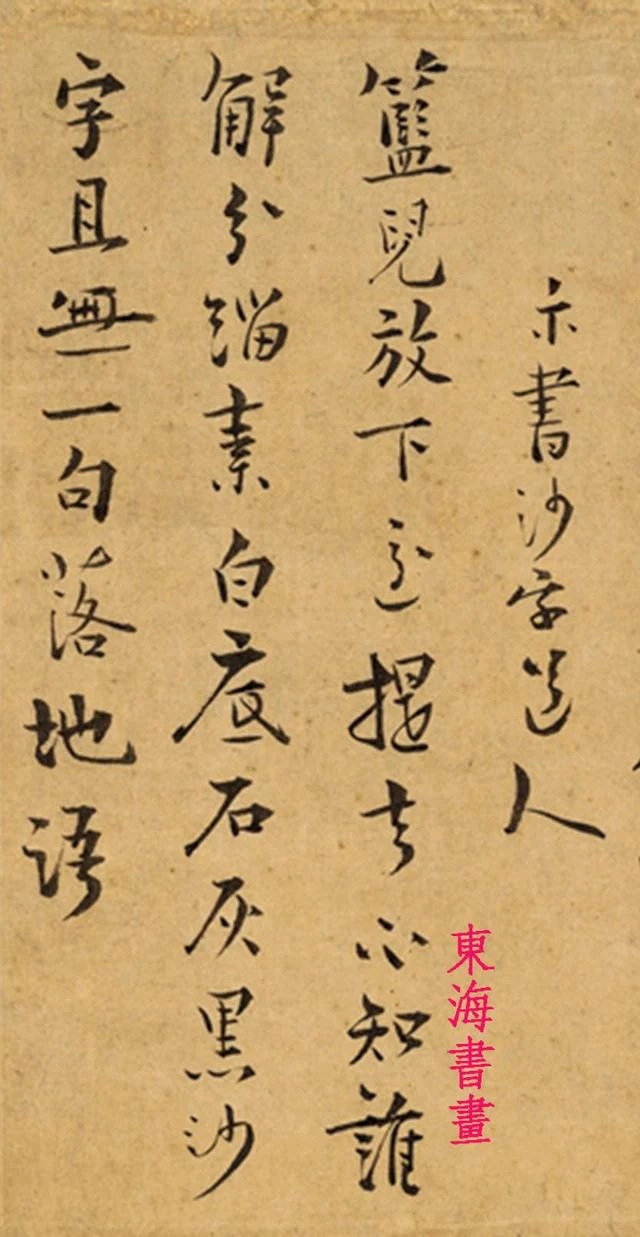 示書沙字道人
籃兒放下還提去不知誰
解分緇素白底石灰黑沙
字且無一句落地語
東海書畫